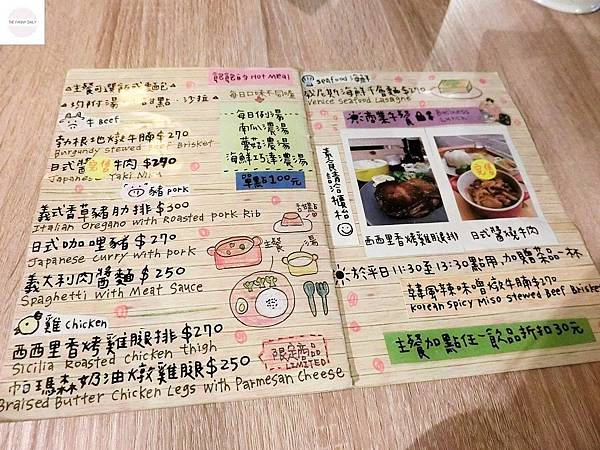 THE FUNNY DAILY
飽飽的 HOT MEAL
主餐可選飯或麵包
均附湯、甜點、沙拉
每日口味不同喔
牛 Beef
勃根地燉牛腩 $270
Burgundy Stewed Beef Brisket
日式醬燒牛肉 $290
Japanese Yaki
每日例湯
南瓜濃湯
蘑菇濃湯
海鮮巧達濃湯
單點100元
豬 pork
義式香草豬肋排 $300
Italian Oregano with Roasted pork Rib
日式咖哩豬 $270
Japanese curry with pork
義大利肉醬麵 $250
Spaghetti with Meat Sauce
主餐
湯
雞 chicken
西西里香烤雞腿排 $270
Sicilia Roasted Chicken thigh
帕瑪森奶油燉雞腿 $250
Braised Butter Chicken Legs with Parmesan Cheese
限定商品
LIMITED!
seafood 海鮮
威尼斯海鮮千層麵 $270
Venice Seafood Lasagne
商業午餐
Business Lunch
素食請洽櫃枱
西西里香烤雞腿排
日式醬燒牛肉
於平日11:30至13:30點用加贈茶品一杯
韓風辣味噌燉牛腩 $270
Korean Spicy Miso Stewed Beef Brisket
主餐加點任一飲品折扣30元